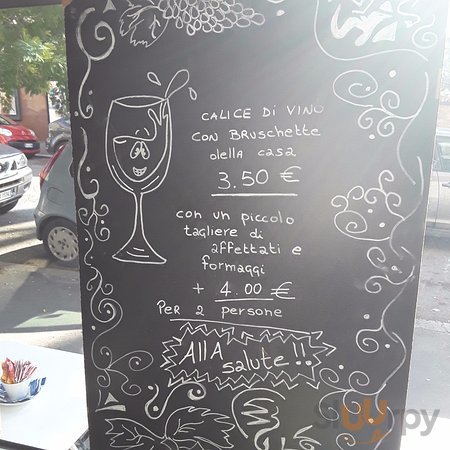 CALICE DI VINO
CON BRUSCHETTE
della casa
3.50 €
con un piccolo
tagliere di
affettati e
formaggi
+ 4.00 €
Per 2 persone
Alla
salute!!
Sluurpy